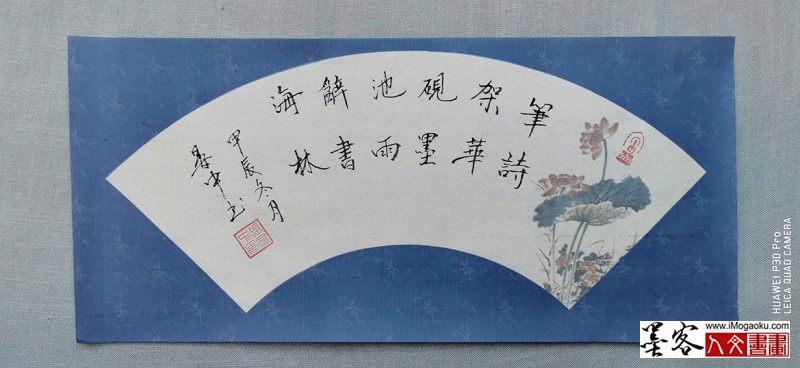 筆架硯池辭海
詩華墨雨書林
甲辰冬月
中书
HUAWEI P30 Pro
LEICA QUAD CAMERA
墨客
www.iMogaoku.com
人文書畫